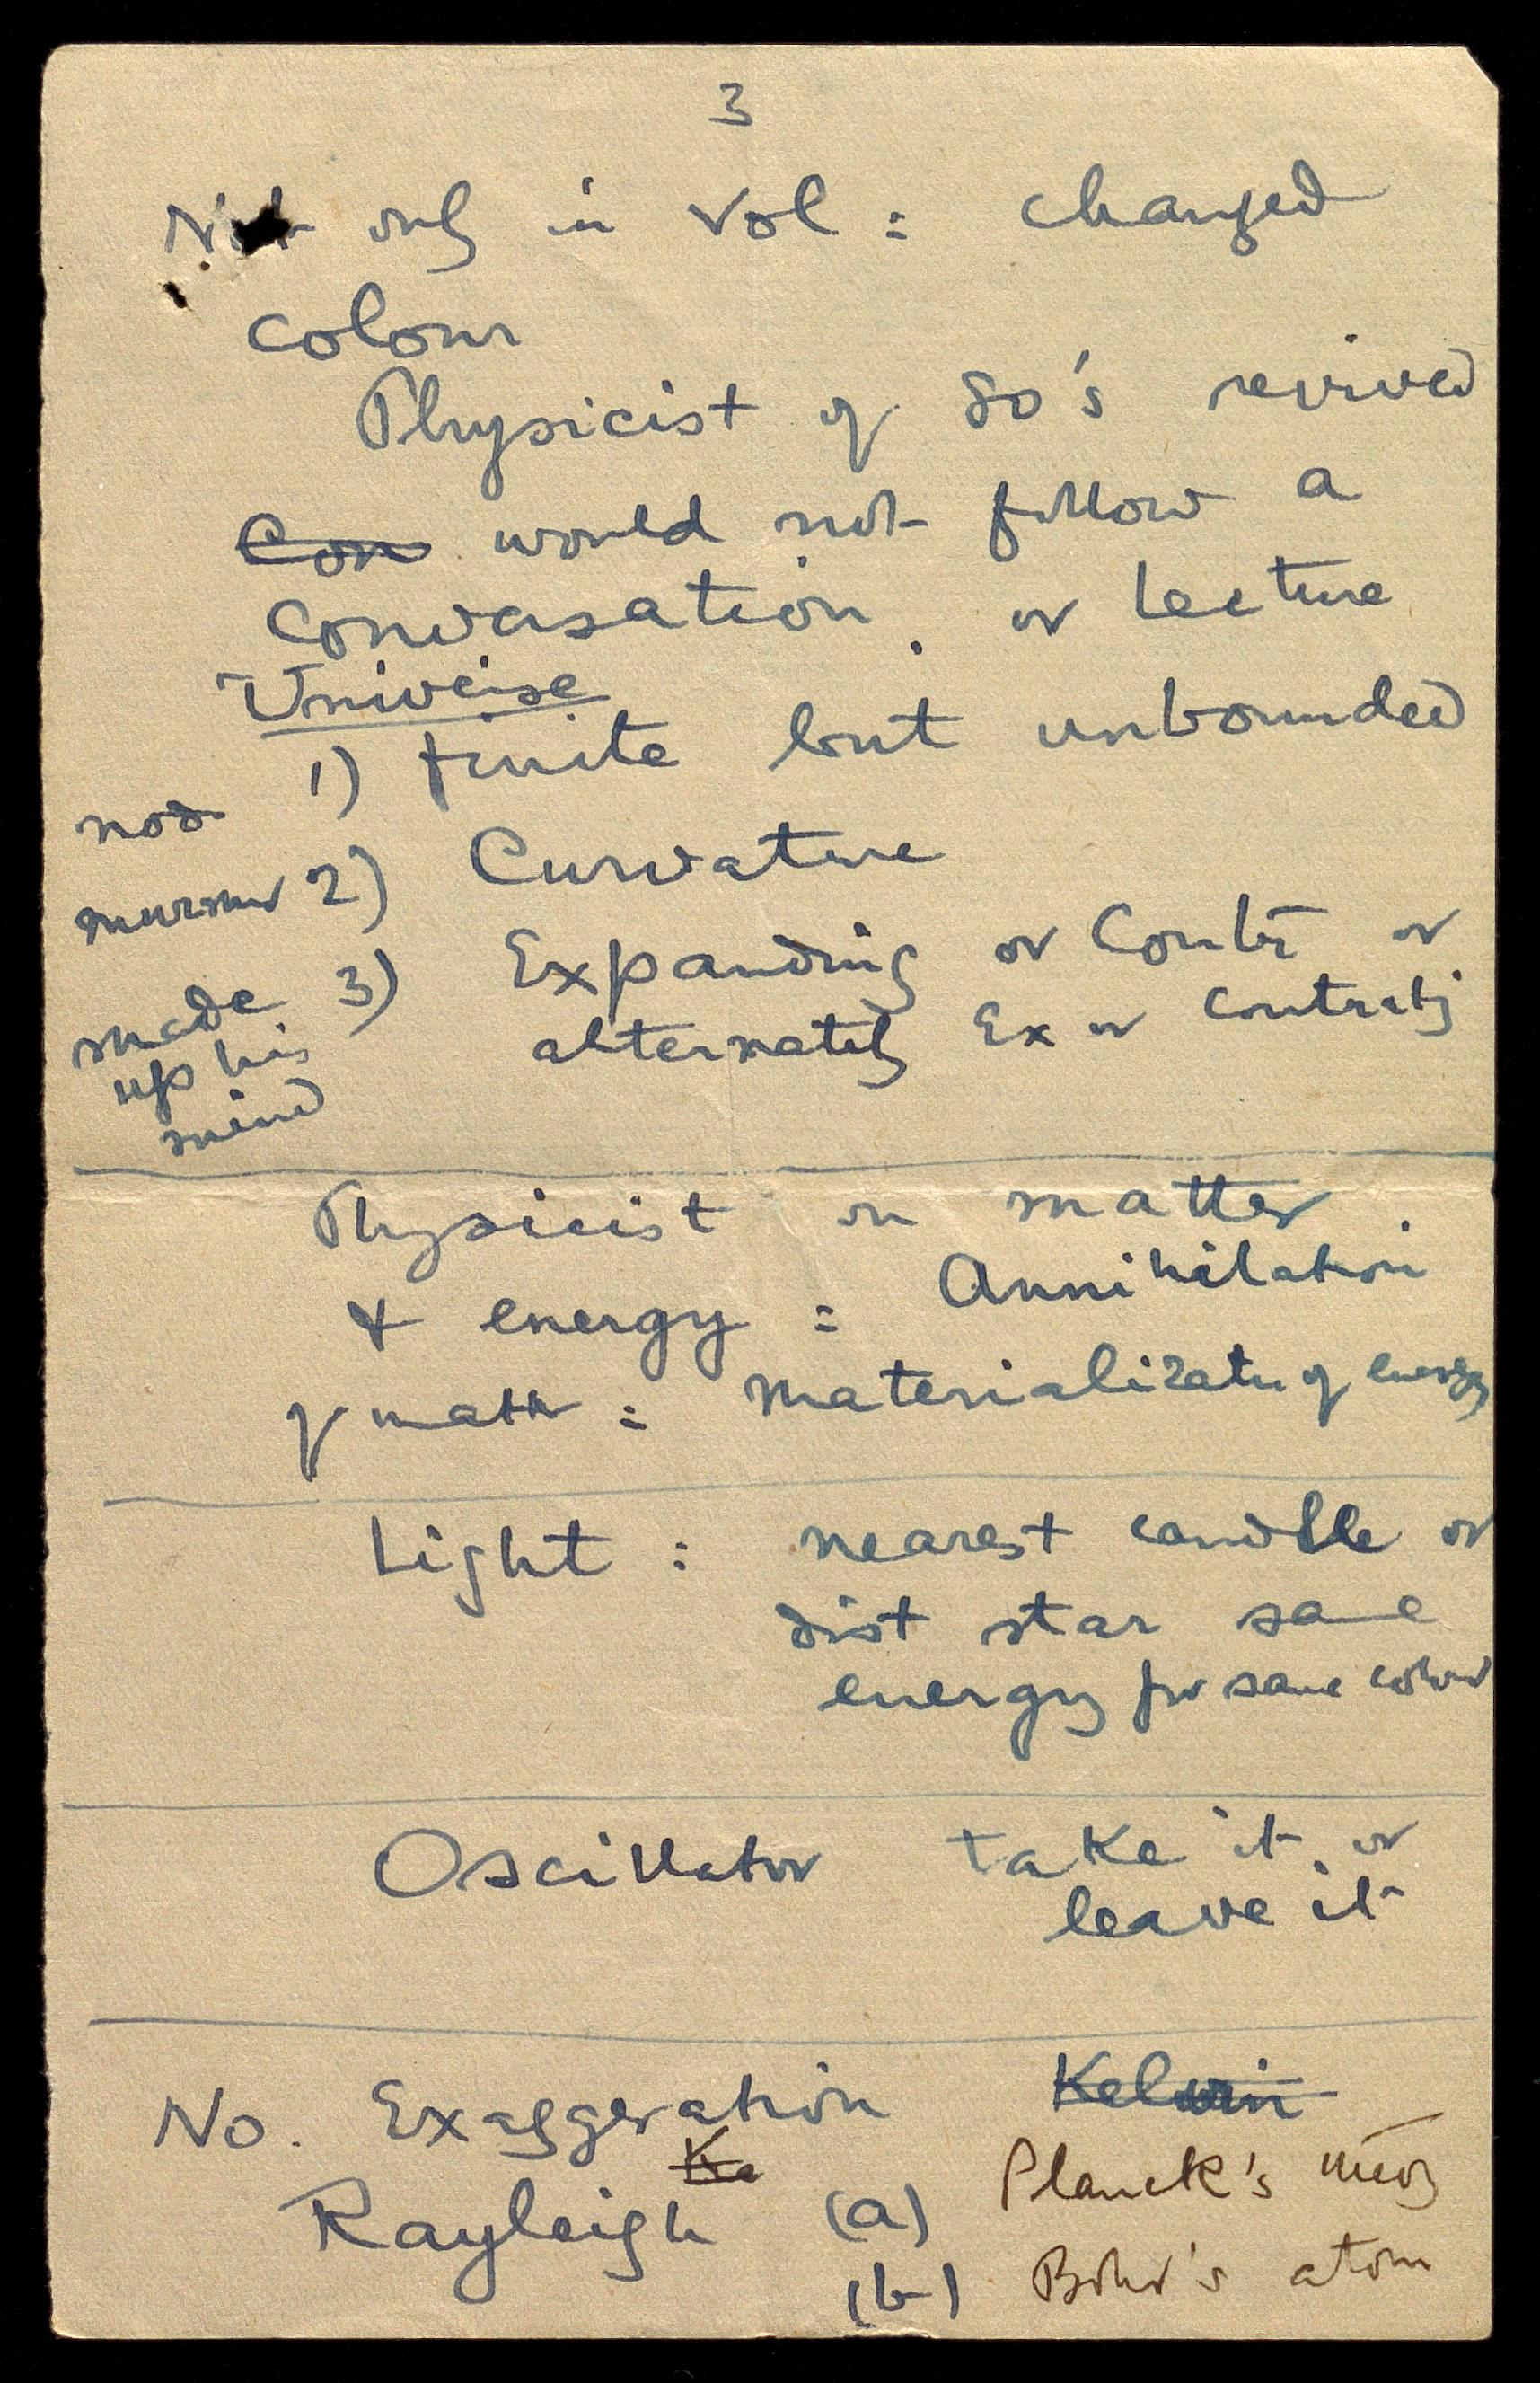 3
Not only in Vol : changed
colour
Physicist of 80's revived
Con would not follow a
conversation. or lecture
Universe
nod 1) finite but unbounded
murmur 2) Curvature
made 3) Expanding or Contr or
up his alternately Ex or contractg
mind
Physicist on matter.
& energy : Annihilation
of matter : materialization of energy
Light : nearest candle or
dist star same
energy for same colour
Oscillator take it or
leave it
No. Exaggeration Kelvin
Ke
Rayleigh (a) Planck's theory
(b) Bohr's atom